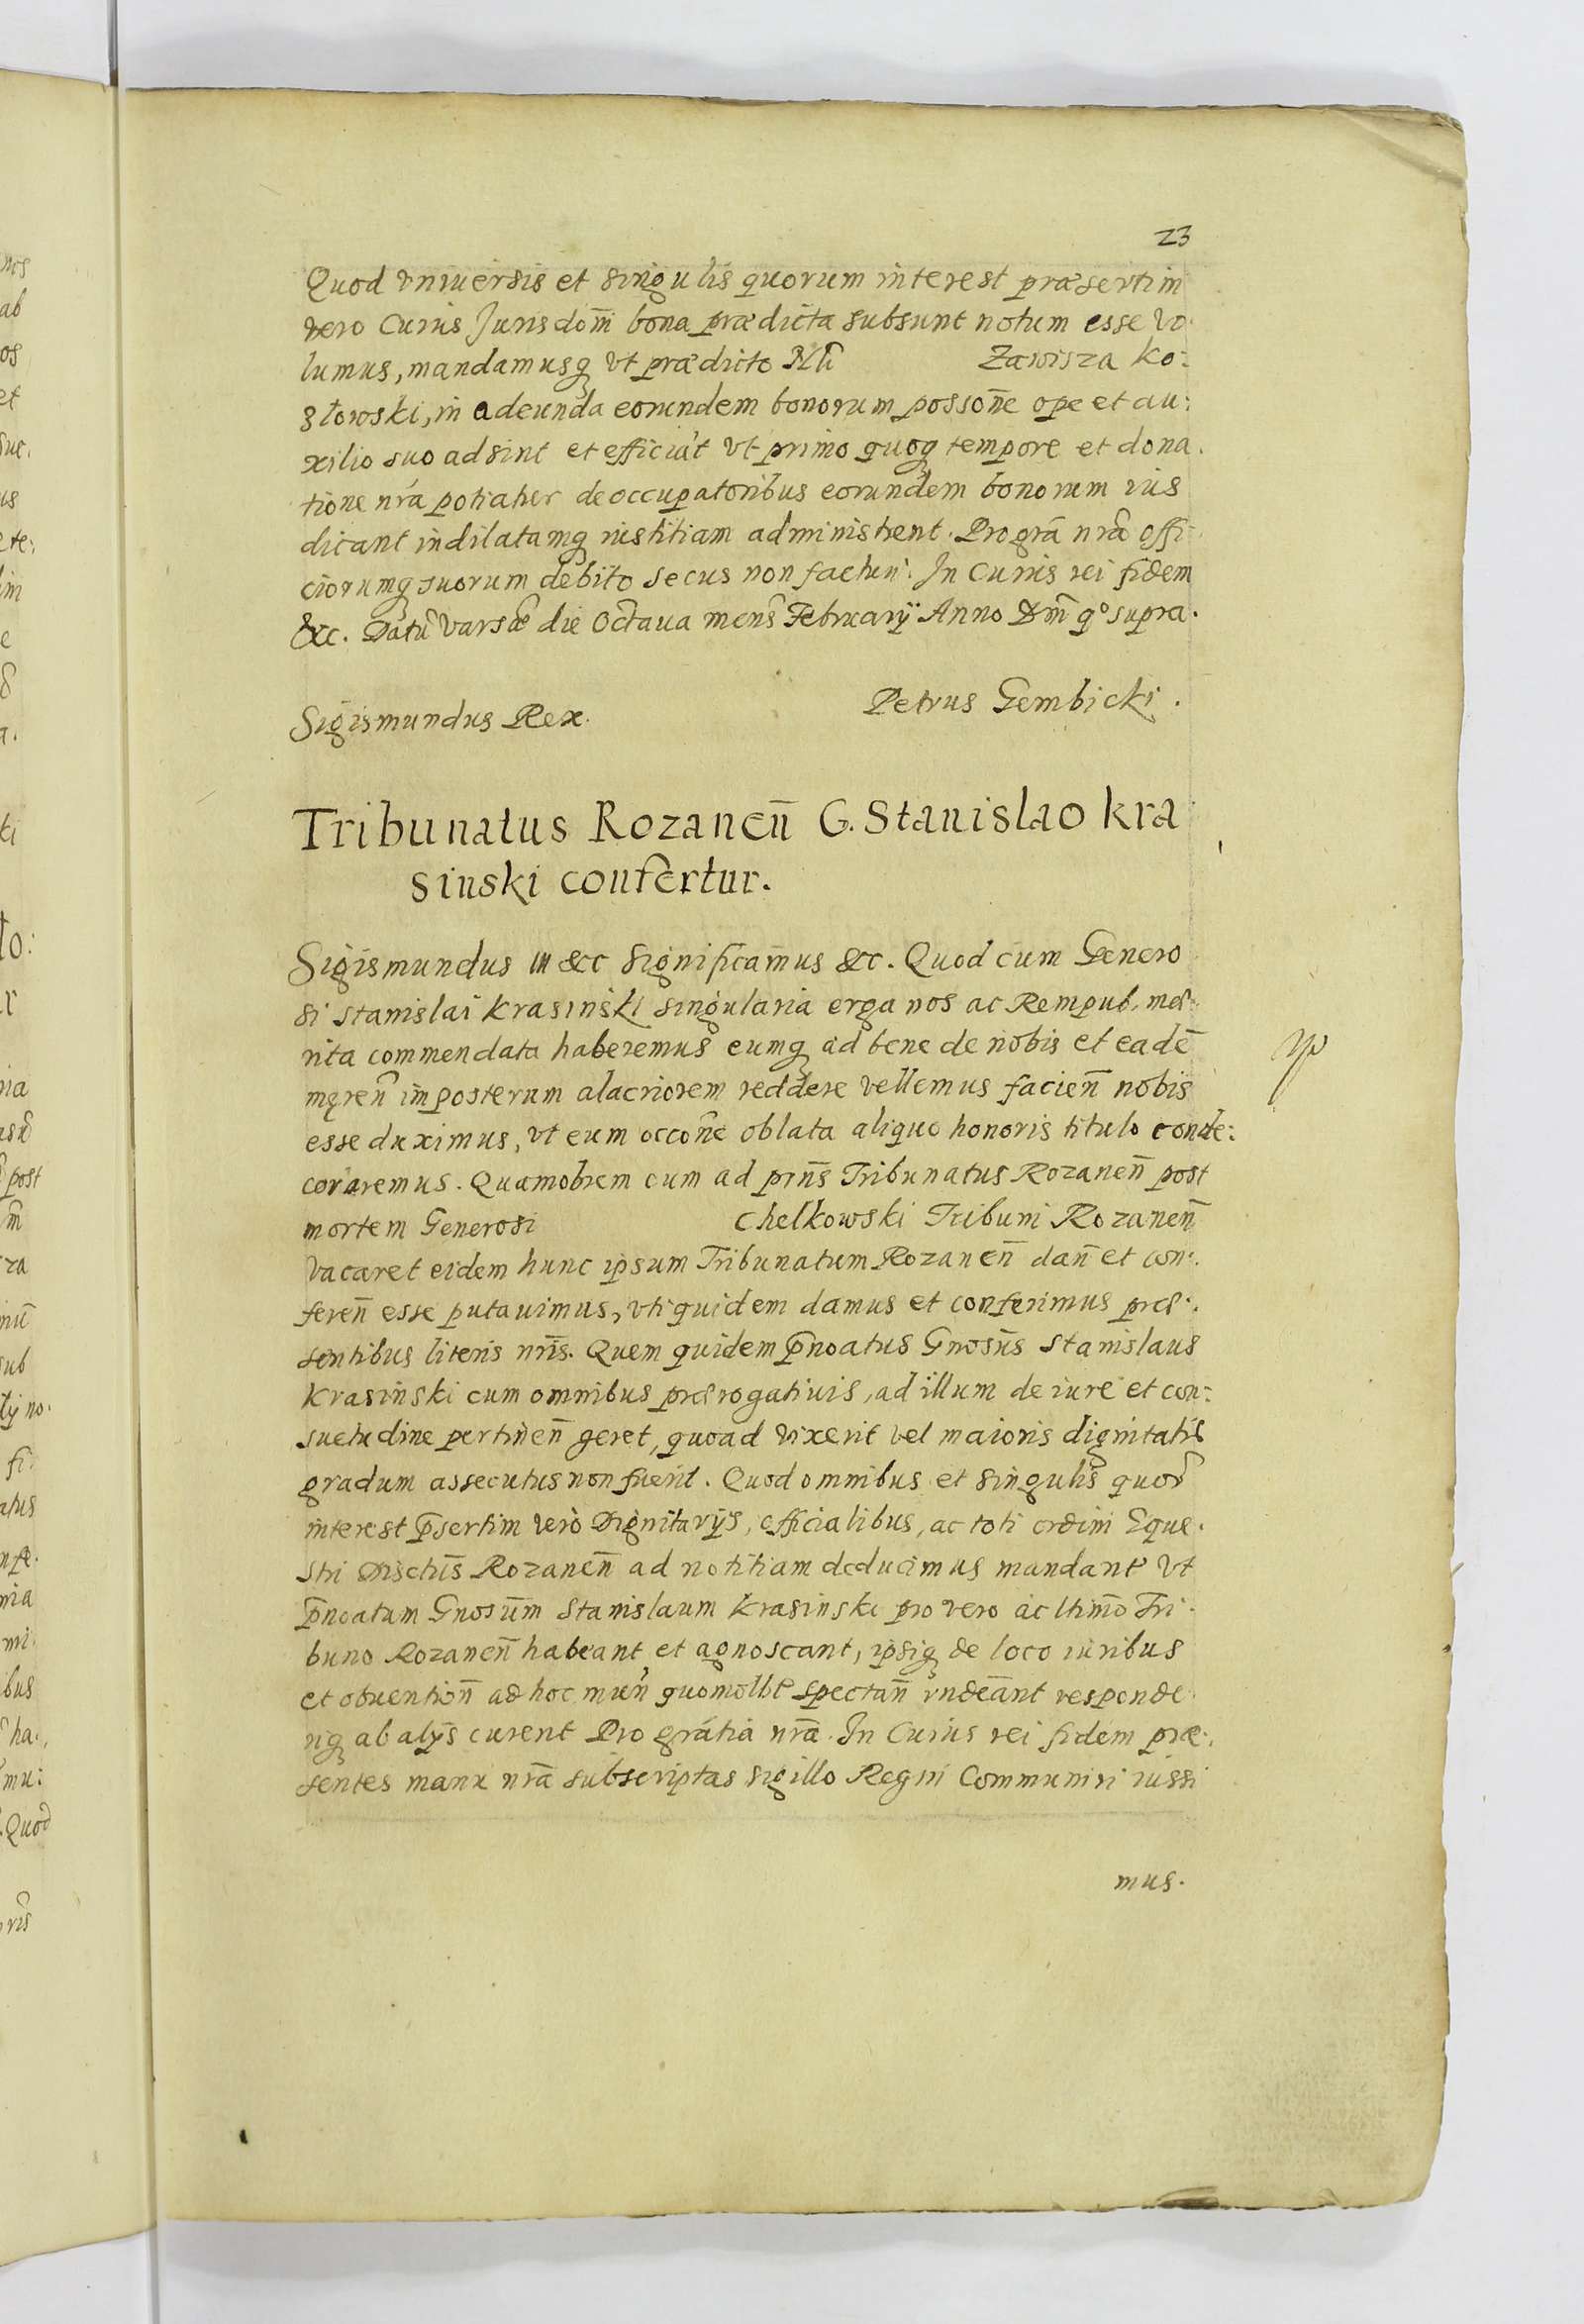 23
Quod vniuersis et singulis quorum interest præsertim
vero Cuius Jurisdom̄ bona prædicta subsunt notum esse vo:
lumus, mandamusq vt prædicto Zawisza Ko:
słowski, in adeunda eorundem bonorum possoñe ope et au:
xilio suo adsint et efficiāt vt primo quoq tempore et dona:
tione nrā potiatur de occupatoribus eorundem bonorum ius
dicant indilatamq iustitiam administrent. Pro grā nrā offi:
ciorumq suorum debito secus non facturi. In Cuius rei fidem
&c. Datū Varsæ die Octaua mens̄ Februarÿ Anno Dm̄ qº supra.
Petrus Gembicki.
Sigismundus Rex.
Tribunatus Rozaneñ G. Stanislao Kra
sinski confertur.
Sigismundus III &c Significamus &c. Quod cum Genero
si Stanislai Krasinski singularia erga nos ac Rempub. me:
rita commendata haberemus eumq ad bene de nobis et eadē
mereñ imposterum alacriorem reddere vellemus facieñ nobis
esse duximus, vt eum occoñe oblata aliquo honoris titulo conde:
coraremus. Quamobrem cum ad prns̄ Tribunatus Rozaneñ post
mortem Generosi Chelkowski Tribuni Rozaneñ
vacaret eidem hunc ipsum Tribunatum Rozaneñ dañ et con:
fereñ esse putauimus, vti quidem damus et conferimus præ:
sentibus literis nrīs. Quem quidem p̄noatus Gnosūs Stanislaus
Krasinski cum omnibus prærogatiuis, ad illum de iure et con:
suetudine pertineñ geret, quoad vixerit vel maioris dignitatis
gradum assecutus non fuerit. Quod omnibus et singulis quor̄
interest p̄sertim vero Dignitarÿs, officialibus, ac toti ordini Eque:
stri Districtīs Rozaneñ ad notitiam deducimus mandant vt
p̄noatum Gnosūm Stanislaum Krasinski pro vero ac ltimō Tri:
buno Rozaneñ habeant et agnoscant, ipsiq de loco iuribus
et obuentioñ ad hoc muñ quomolbt spectañ rndeānt responde
riq ab alÿs curent Pro gratia nrā. In Cuius rei fidem præ:
sentes manu nrā subscriptas sigillo Regni Communiri iussi
mus.